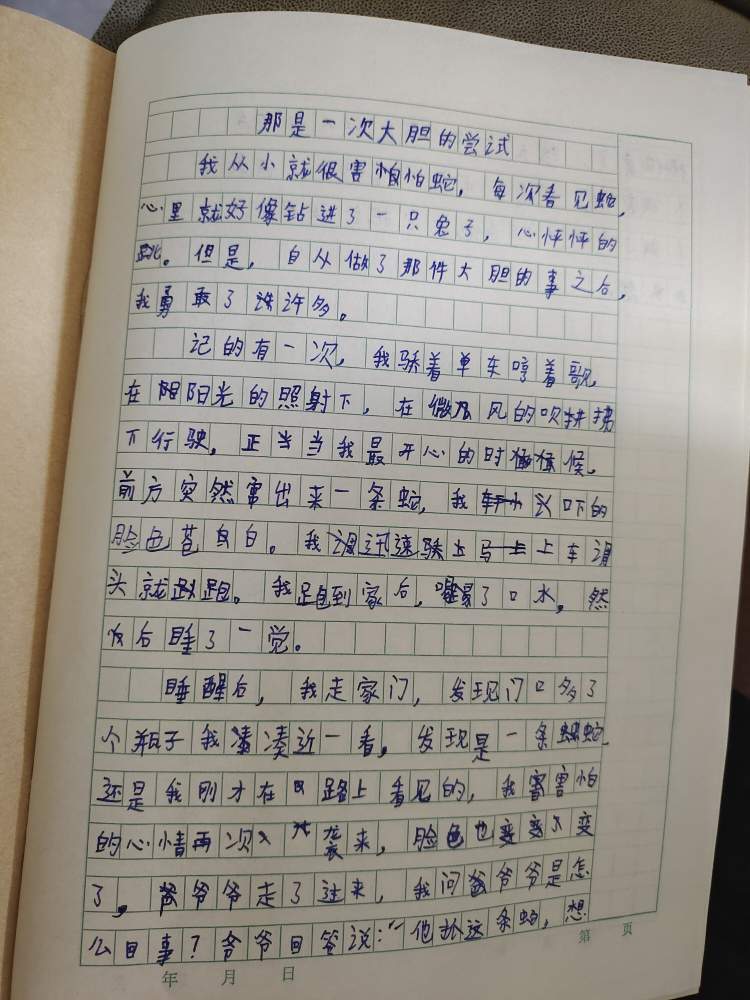 那是一次大胆的尝试
我从小就很害怕怕蛇，每次看见蛇，
心里就好像钻进了一只兔子，心怦怦的
跳。但是，自从做了那件大胆的事之后，
我勇敢了许多。
记的有一次，我骄着单车哼着歌，
在阳光的照射下，在微风的吹拂
下行驶，正当当我最开心的时候，
前方突然窜出来一条蛇，我吓的
脸色苍白。我迅速骄上车调
头就跑。我跑到家后，喝了口水，然
后睡了一觉。
睡醒后，我走家门，发现门口多了
个瓶子我凑近一看，发现是一条蛇
还是我刚才在路上看见的，我害怕
的心情再次袭来，脸色也变
了，爷爷走了过来，我问爷爷是怎
么回事？爷爷回答说：“他抓这条蛇，想
年 月 日
第 页